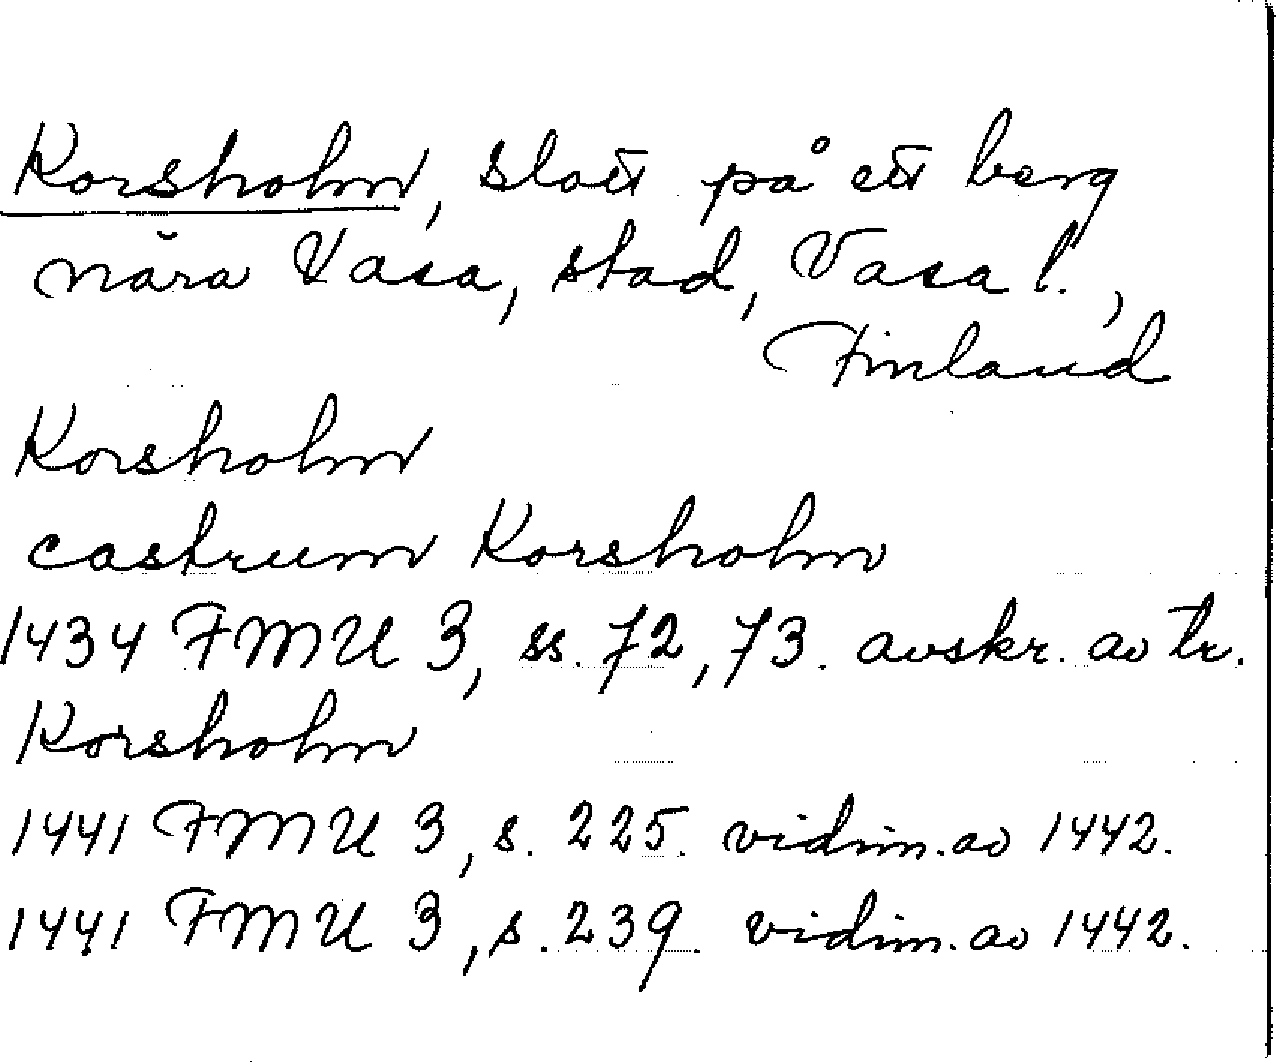 Korsholm, slott på ett berg
nära Vasa, stad, Vasa l.,
Finland
Korsholm
castrum Korsholm
1434 FMU 3, ss. 72, 73. avskr. av tr.
Korsholm
1441 FMU 3, s. 225. vidim. av 1442.
1441 FMU 3, s. 239. vidim. av 1442.